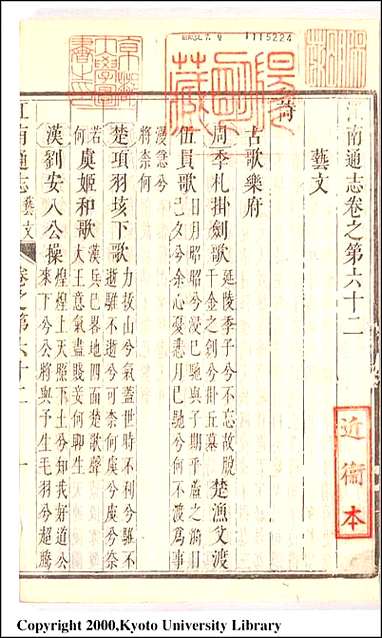 1115224
江南通志卷之第六十二
藝文
詩
古歌樂府
周季札掛劍歌 延陵季子兮不忘故脫
千金之劍兮掛丘墓 楚漁父渡
伍員歌 日月昭昭兮浸已馳與子期乎蘆之漪日
已夕兮余心憂悲月已馳兮何不渡為事
浸急兮
將奈何
楚項羽垓下歌 力拔山兮氣蓋世時不利兮騅不
逝騅不逝兮可奈何虞兮虞兮奈
若
何 虞姬和歌 漢兵已畧地四面楚歌聲
大王意氣盡賤妾何聊生
漢劉安八公操 煌煌上天照下土兮知我好道公
來下兮公將與予生毛羽兮超騰
江南通志 藝文 卷之第六十二 一
近衞本
Copyright 2000,Kyoto University Library